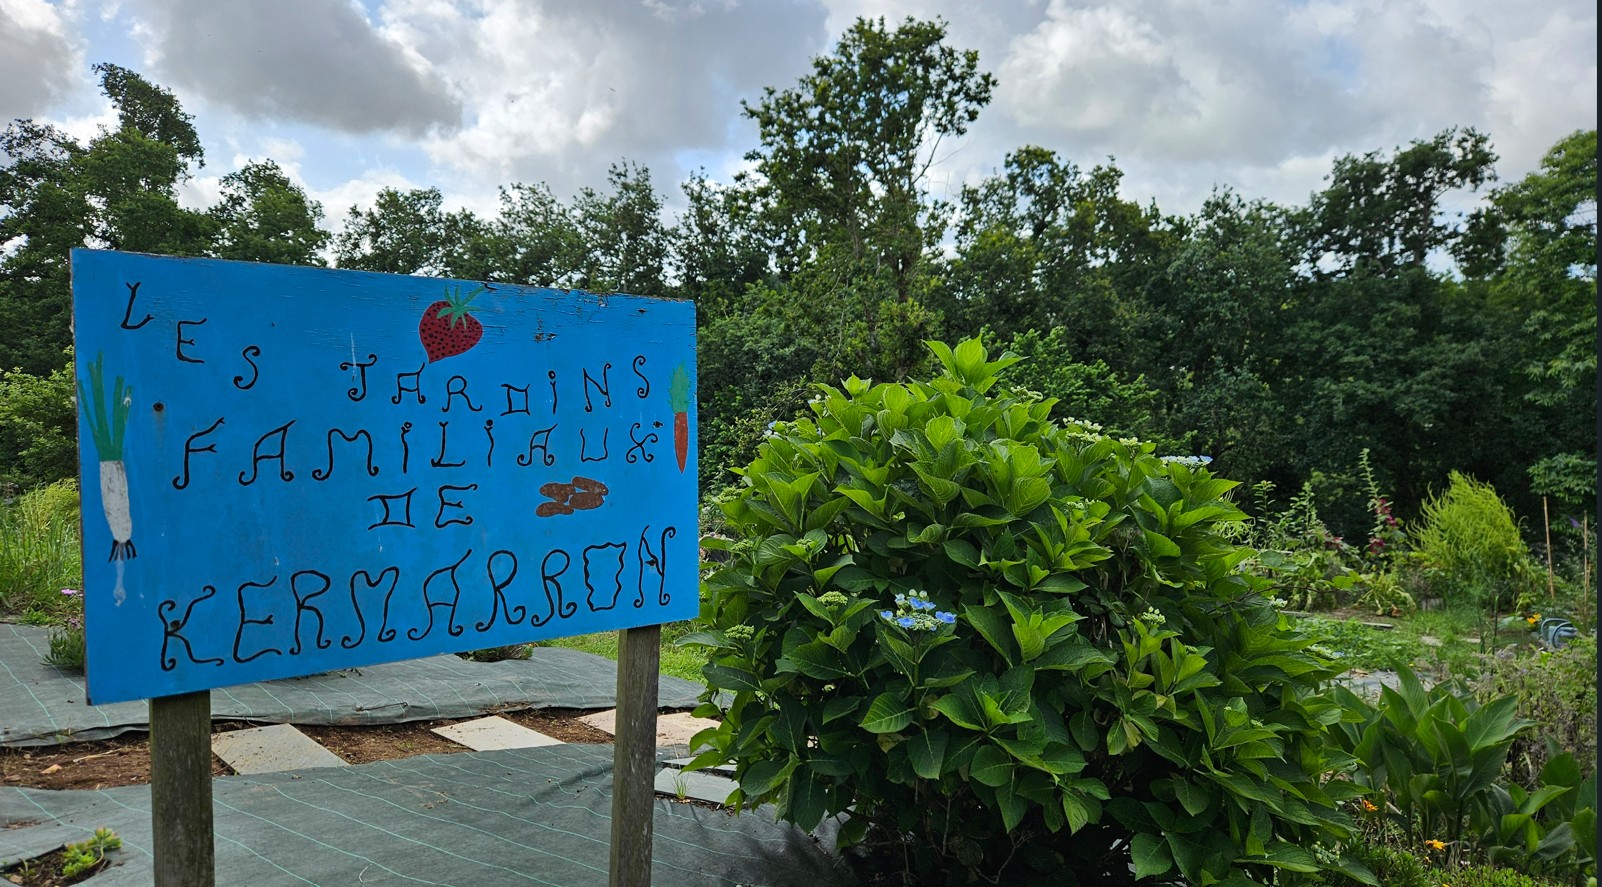 LES JARDINS
FAMILIAUX
DE
KERMARRON